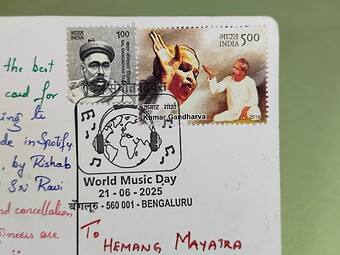 भारत INDIA
1.00
BAL GANGADHAR TILAK
भारत
INDIA 5.00
कुमार गंधर्व
Kumar Gandharva
2014
the best
card for
ing to
de in Spotify
, by Rishab
Sri Ravi
nd cancellation
oneers are
World Music Day
21 - 06 - 2025
बेंगलूरु - 560 001 - BENGALURU
To
HEMANG MAYATRA